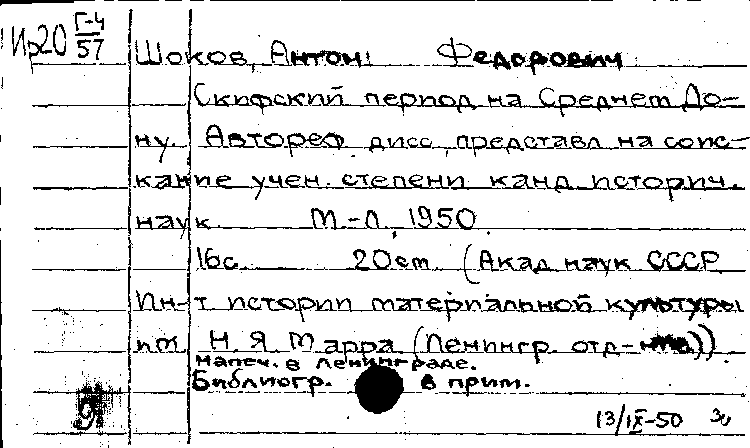 Ир20 Г-4/57
Шоков, Антон Федорович
Скифский период на Среднем До-
ну. Автореф. дисс., представл. на соис-
кание учен. степени канд. историч.
наук. М.-Л., 1950.
16с. 20см. (Акад. наук СССР.
Ин-т истории материальной культуры
им. Н. Я. Марра (Ленингр. отд-ние))
Напеч. в Ленинграде.
Библиогр. в прим.
13/IX-50